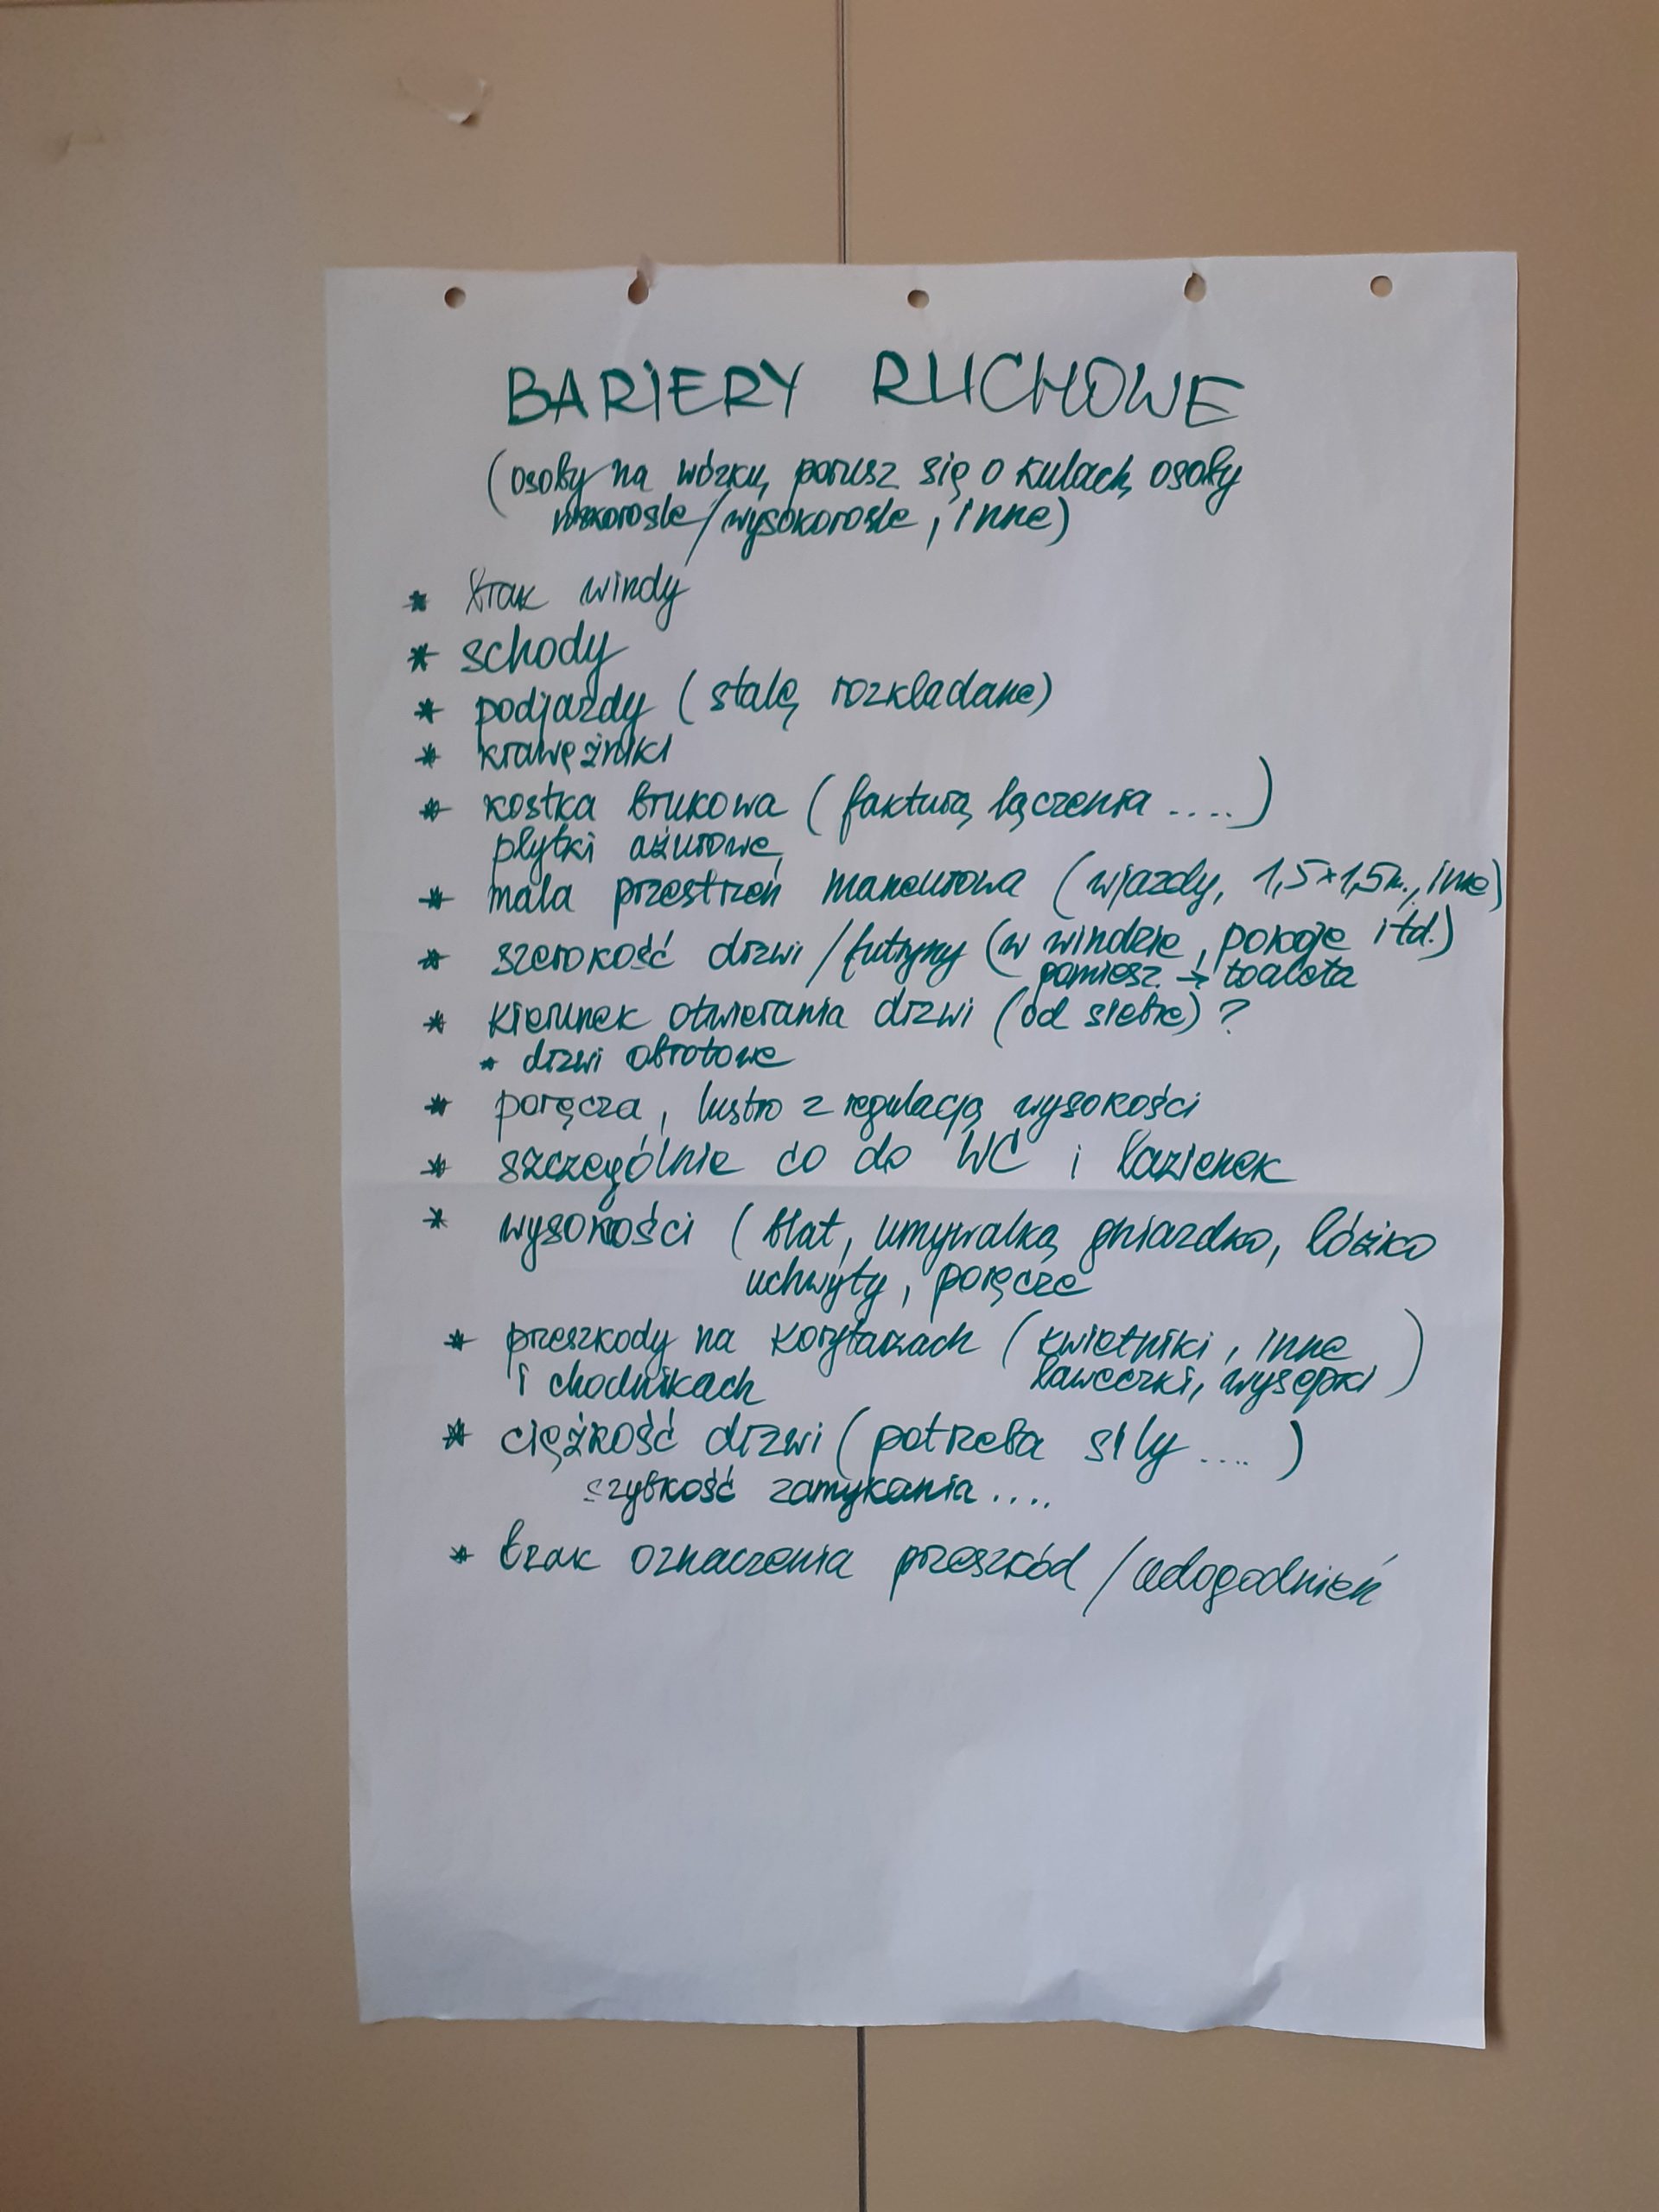 BARIERY RUCHOWE
(osoby na wózku, porusz się o kulach, osoby
niskorosłe/wysokorosłe, inne)
* brak windy
* schody
* podjazdy (stałe, rozkładane)
* krawężniki
* kostka brukowa (faktura, łączenia ....)
płytki ażurowe,
* mała przestrzeń manewrowa (wjazdy, 1,5x1,5m., inne)
* szerokość drzwi/futryny (w windzie, pokoje itd.)
pomiesz. → toaleta
* kierunek otwierania drzwi (od siebie)?
* drzwi obrotowe
* poręcza, lustro z regulacją wysokości
* szczególnie co do WC i łazienek
* wysokości (blat, umywalka, gniazdko, łóżko
uchwyty, poręcze
* przeszkody na korytarzach (kwietniki, inne
i chodnikach ławeczki, wysepki)
* ciężkość drzwi (potrzeba siły ....)
szybkość zamykania ....
* brak oznaczenia przeszkód/udogodnień